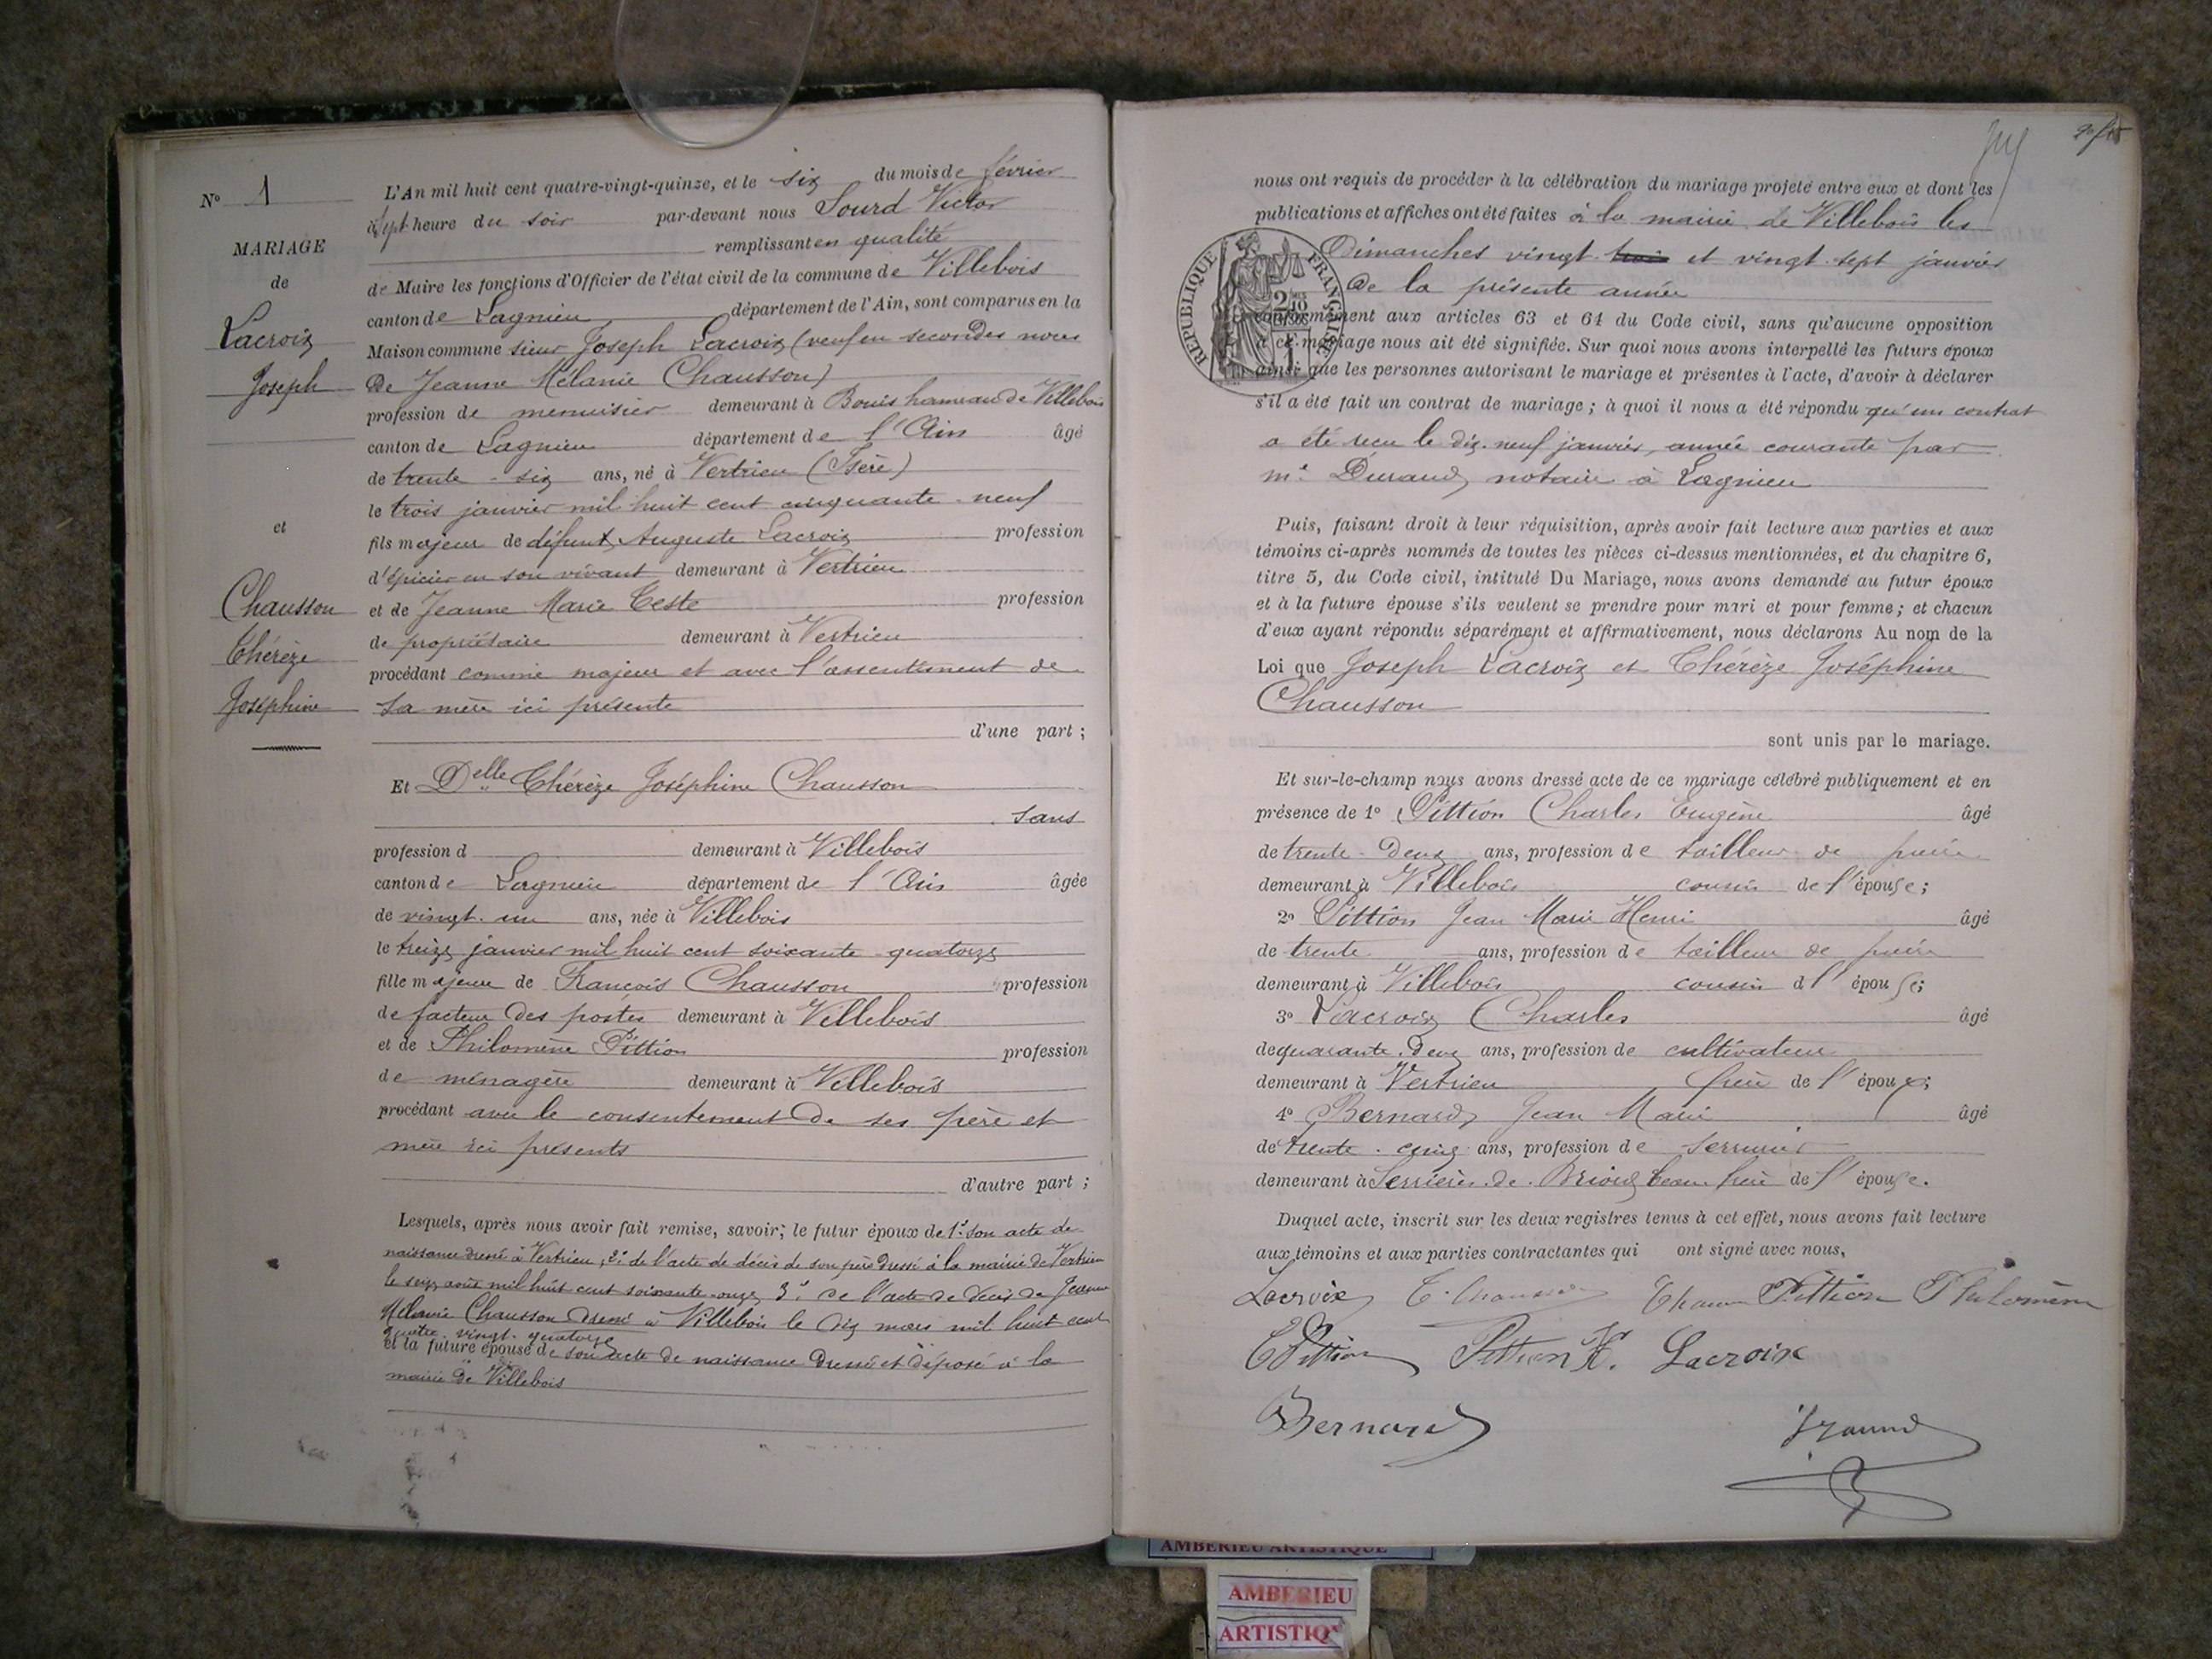 N° 1
MARIAGE
de
Lacroix
Joseph
et
Chausson
Thérèze
Joséphine
L'An mil huit cent quatre-vingt-quinze, et le six du mois de février
à sept heure du soir par-devant nous Sourd Victor
remplissant en qualité
de Maire les fonctions d'Officier de l'état civil de la commune de Villebois
canton de Lagnieu département de l'Ain, sont comparus en la
Maison commune sieur Joseph Lacroix (veuf en secondes noces
de Jeanne Mélanie Chausson)
profession de menuisier demeurant à Bouis hameau de Villebois
canton de Lagnieu département de l'Ain âgé
de trente-six ans, né à Vertrieu (Isère)
le trois janvier mil huit cent cinquante-neuf
fils majeur de défunt Auguste Lacroix profession
d'épicier en son vivant demeurant à Vertrieu
et de Jeanne Marie Teste profession
de propriétaire demeurant à Vertrieu
procédant comme majeur et avec l'assentiment de
sa mère ici présente
d'une part ;
Et Delle Thérèze Joséphine Chausson
sans
profession d demeurant à Villebois
canton de Lagnieu département de l'Ain âgée
de vingt-un ans, née à Villebois
le treize janvier mil huit cent soixante-quatorze
fille majeure de François Chausson profession
de facteur des postes demeurant à Villebois
et de Philomène Pittion profession
de ménagère demeurant à Villebois
procédant avec le consentement de ses père et
mère ici présents
d'autre part ;
Lesquels, après nous avoir fait remise, savoir ; le futur époux de 1° son acte de
naissance dressé à Vertrieu, 2° de l'acte de décès de son père dressé à la mairie de Vertrieu
le seize août mil huit cent soixante-onze 3° de l'acte de décès de Jeanne
Mélanie Chausson dressé à Villebois le dix mars mil huit cent
quatre-vingt-quatorze
et la future épouse de son acte de naissance dressé et déposé à la
mairie de Villebois
nous ont requis de procéder à la célébration du mariage projeté entre eux et dont les
publications et affiches ont été faites à la mairie de Villebois les
Dimanches vingt trois et vingt-sept janvier
de la présente année
RÉPUBLIQUE FRANÇAISE
conformément aux articles 63 et 64 du Code civil, sans qu'aucune opposition
à ce mariage nous ait été signifiée. Sur quoi nous avons interpellé les futurs époux
ainsi que les personnes autorisant le mariage et présentes à l'acte, d'avoir à déclarer
s'il a été fait un contrat de mariage ; à quoi il nous a été répondu qu'un contrat
a été reçu le dix-neuf janvier, année courante par
me Durand, notaire à Lagnieu
Puis, faisant droit à leur réquisition, après avoir fait lecture aux parties et aux
témoins ci-après nommés de toutes les pièces ci-dessus mentionnées, et du chapitre 6,
titre 5, du Code civil, intitulé Du Mariage, nous avons demandé au futur époux
et à la future épouse s'ils veulent se prendre pour mari et pour femme ; et chacun
d'eux ayant répondu séparément et affirmativement, nous déclarons Au nom de la
Loi que Joseph Lacroix et Thérèze Joséphine
Chausson
sont unis par le mariage.
Et sur-le-champ nous avons dressé acte de ce mariage célébré publiquement et en
présence de 1° Pittion Charles Eugène âgé
de trente-deux ans, profession de tailleur de pierre
demeurant à Villebois cousin de l'épouse ;
2° Pittion Jean Marie Henri âgé
de trente ans, profession de tailleur de pierre
demeurant à Villebois cousin d l'épouse ;
3° Lacroix Charles âgé
de quarante-deux ans, profession de cultivateur
demeurant à Vertrieu frère de l'époux ;
4° Bernard Jean Marie âgé
de trente-cinq ans, profession de serrurier
demeurant à Serrières-de-Briord beau-frère de l'épouse.
Duquel acte, inscrit sur les deux registres tenus à cet effet, nous avons fait lecture
aux témoins et aux parties contractantes qui ont signé avec nous,
Lacroix T. Chausson Pittion Philomène
C Pittion Pittion H. Lacroix
Bernard
AMBERIEU ARTISTIQUE
AMBERIEU
ARTISTIQ